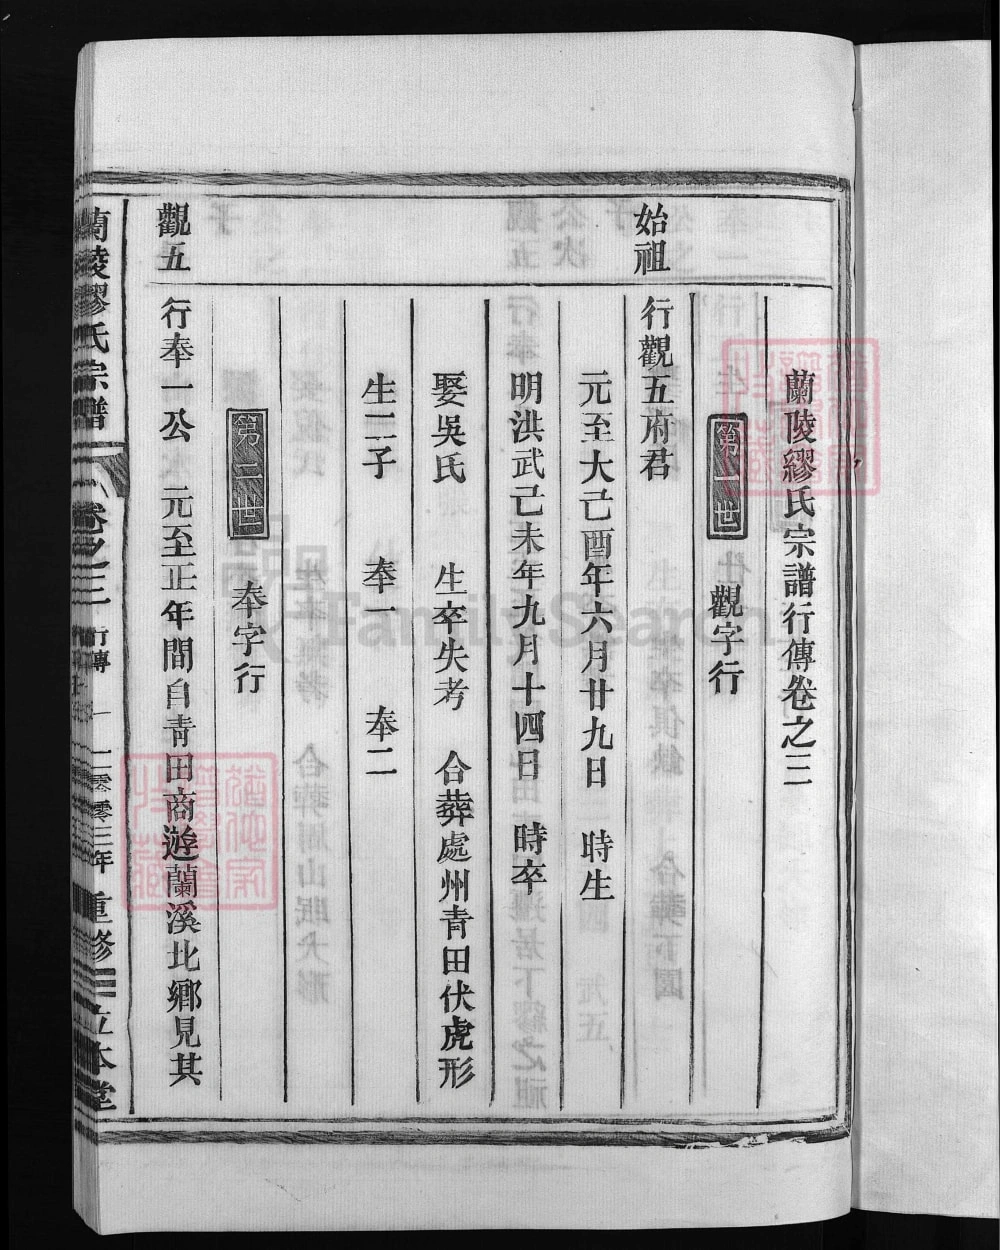 蘭陵繆氏宗譜行傳卷之三
第一世 觀字行
始祖 行觀五府君
元至大己酉年六月廿九日 時生
明洪武己未年九月十四日 時卒
娶吳氏 生卒失考 合葬處州青田伏虎形
生二子 奉一 奉二
第二世 奉字行
觀五 行奉一公 元至正年間自青田商遊蘭溪北鄉見其
蘭陵繆氏宗譜 卷之三 行傳 一 二零零三年 重修 立本堂
FamilySearch